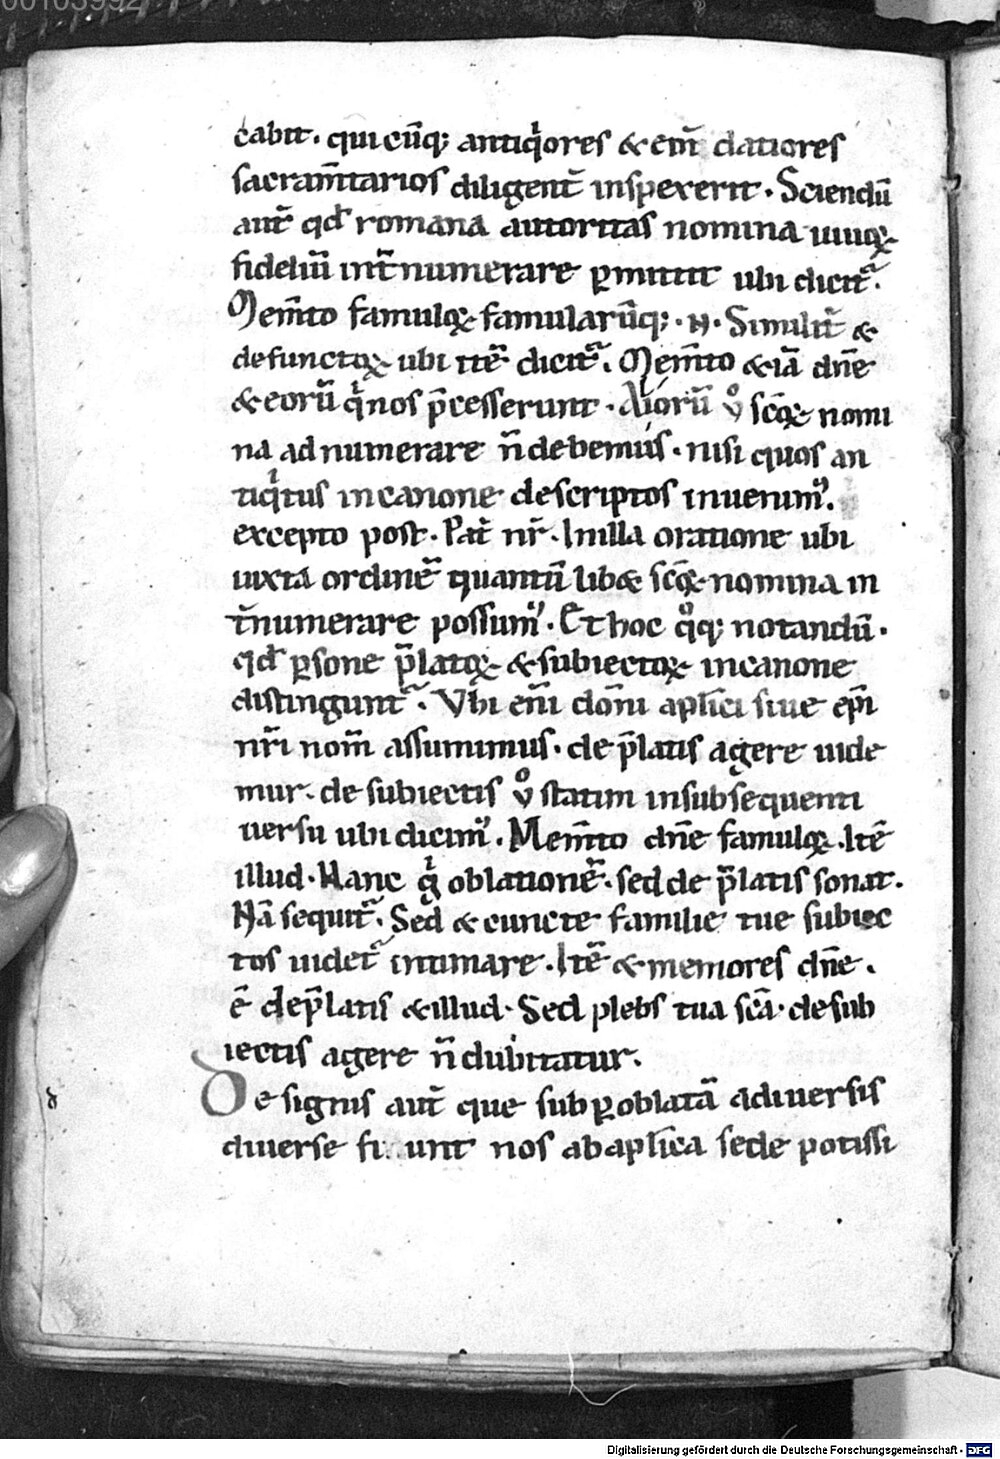 00103992
cabit. qui cūq; antiqͥores & em̄datiores
sacram̄tarios diligent̄ inspexerit. Sciendū
aut̄ qd̄ romana autoritas nomina uiuoꝝ
fideliū int̄numerare ꝑmittit ubi dicit̄.
Mem̄to famuloꝝ famularūq; .N. Similit̄ &
defunctoꝝ ubi itē dicit̄. Mem̄to &iā dn̄e
& eorū qͥ nos p̄cesserunt. Aliorū uͦ sc̄oꝝ nomi
na ad numerare n̄ debemus. nisi quos an
tiqͥtus in canone descriptos inuenimꝰ.
excepto post. Pat̄ nr̄. In illa oratione ubi
iuxta ordinē quantū lib& sc̄oꝝ nomina in
t̄numerare possumꝰ. Et hoc qͦq; notandū.
qd̄ ꝑsone p̄latoꝝ & subiectoꝝ in canone
distingunt̄. Vbi eni̅ dom̄i apl̄ici siue ep̄i
nr̄i nom̄ assumimus. de p̄latis agere uide
mur. de subiectis uͦ statim in subsequenti
uersu ubi dicimꝰ. Mem̄to dn̄e famuloꝝ. Itē
illud. Hanc gͥ oblationē. sed de p̄latis sonat.
Nā sequit̄. Sed & cuncte familie tue subiec
tos uidet̄ intimare. Itē & memores dn̄e.
ē de p̄latis & illud. Sed plebs tua sc̄a. de sub
iectis agere n̄ dubitatur.
d De signis aut̄ que sub ꝑ oblatā a diuersis
diuerse fiunt nos ab apl̄ica sede potissi
Digitalisierung gefördert durch die Deutsche Forschungsgemeinschaft - DFG